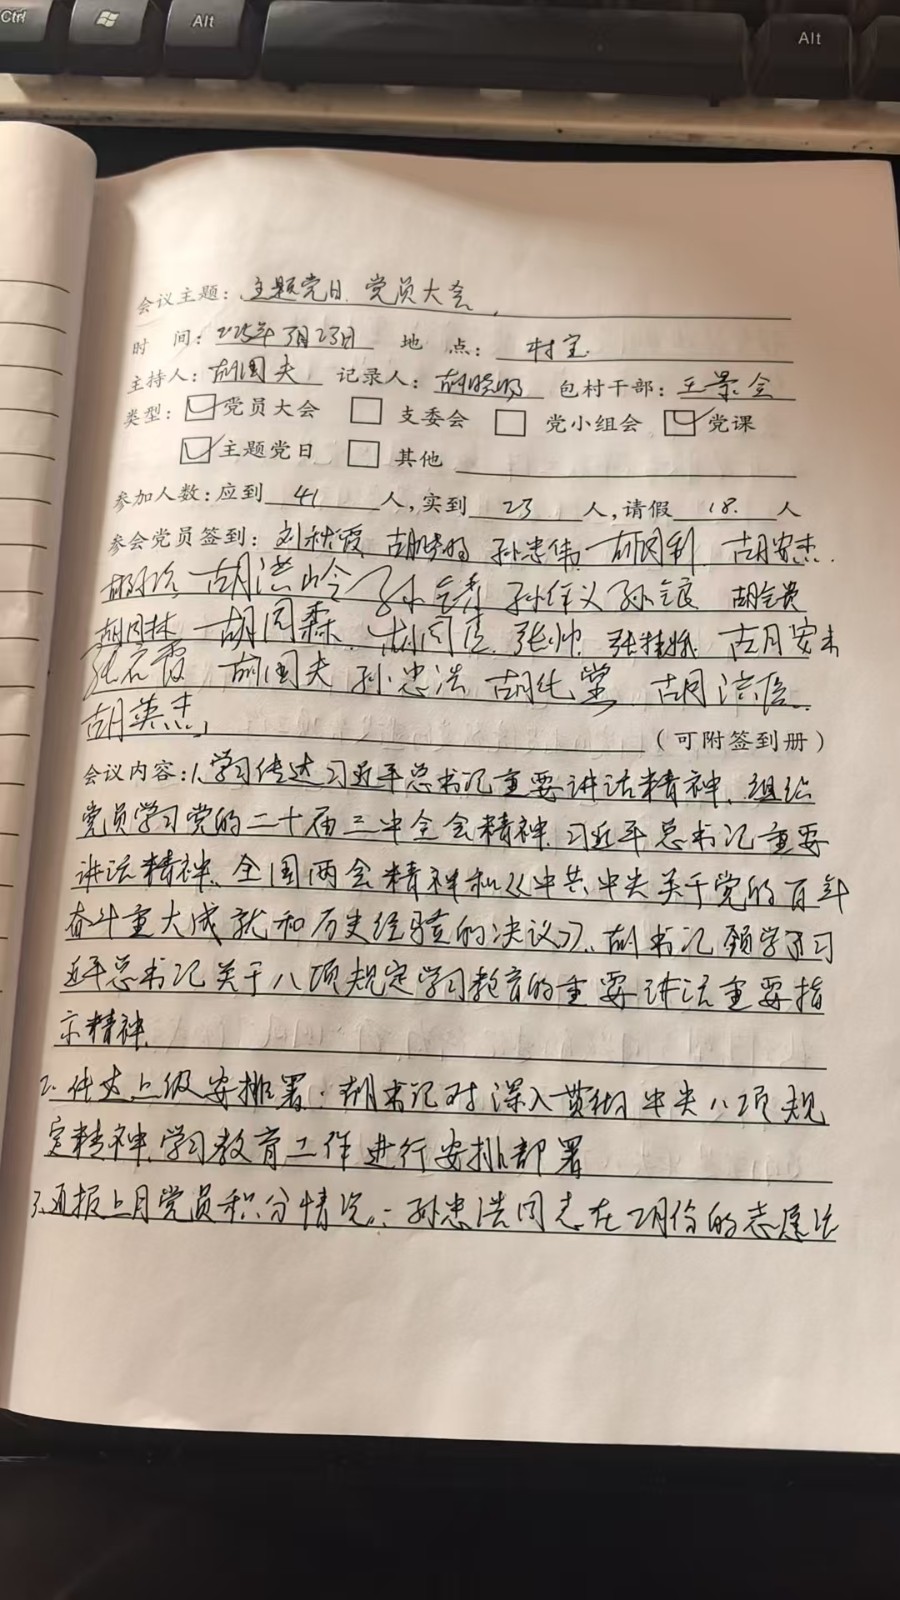 Ctrl Alt Alt
会议主题：主题党日 党员大会
时 间：2025年3月23日 地 点：村室
主持人：胡国夫 记录人：胡晓明 包村干部：王景全
类型：☑党员大会 □ 支委会 □ 党小组会 ☑ 党课
☑主题党日 □ 其他
参加人数：应到 41 人，实到 23 人，请假 18. 人
参会党员签到：刘秋霞 孙忠伟 胡安杰
胡洪岭 孙信义
胡国森 张帅
胡国夫 孙忠浩
胡英杰
（可附签到册）
会议内容：1、学习传达习近平总书记重要讲话精神、组织
党员学习党的二十届三中全会精神、习近平总书记重要
讲话精神、全国两会精神和《中共中央关于党的百年
奋斗重大成就和历史经验的决议》、胡书记领学了习
近平总书记关于八项规定学习教育的重要讲话重要指
示精神.
2. 传达上级安排部署：胡书记对深入贯彻中央八项规
定精神、学习教育工作进行安排部署
3.通报上月党员积分情况：孙忠浩同志在2月份的志愿活